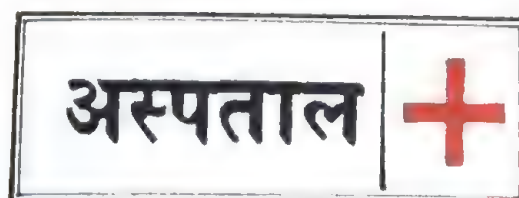 अस्पताल